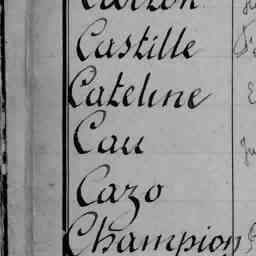 Castille
Cateline
Cau
Cazo
Champion